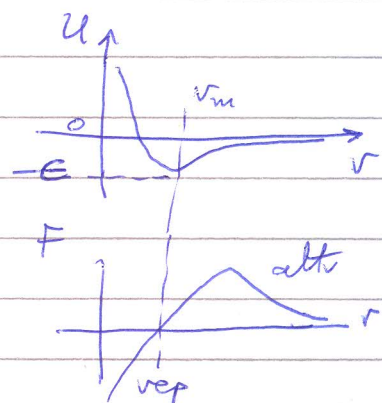 U
r_m
0
r
-ϵ
F
attr
r
rep